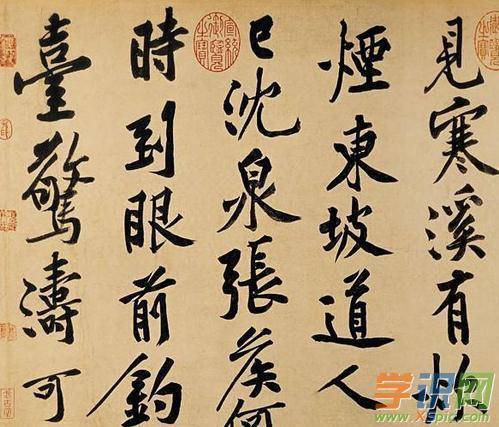 見寒溪有炊
煙東坡道人
已沈泉張侯何
時到眼前釣
臺驚濤可
宣統御覽之寶
学识网
www.XSpic.com